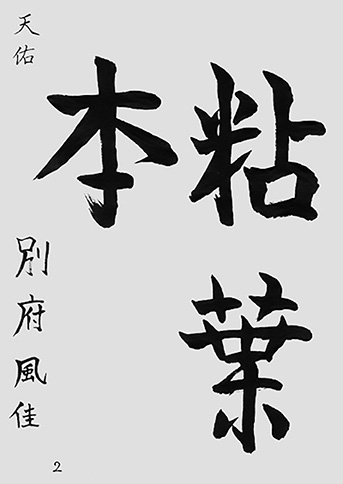 粘葉
本
天佑
別府風佳
2